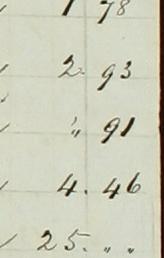 1 78
2. 93
" 91
4. 46
25. " "